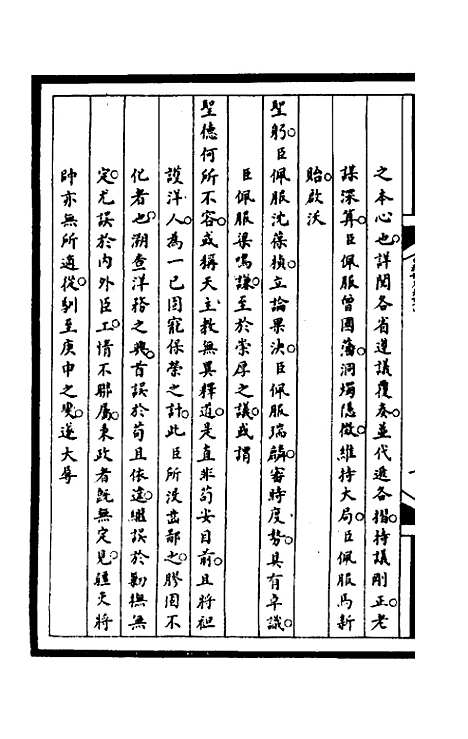 之本心也。詳閱各省遵議覆奏。並代遞各摺。持議剛正。老
謀深算。臣佩服曾國藩。洞燭隱微。維持大局。臣佩服馬新
貽。啟沃
聖躬。臣佩服沈葆楨。立論果決。臣佩服瑞麟。審時度勢。具有卓識。
臣佩服梁鳴謙。至於崇厚之議。或謂
聖德何所不容。或稱天主教無異釋道。是直非苟安目前。且將袒
護洋人。為一已固寵保榮之計。此臣所謂齒鄙之膠固不
化者也。溯查洋務之興。首誤於苟且依違。繼誤於勦撫無
定。尤誤於內外臣工。情不聯屬。秉政者既無定見。疆吏將
帥亦無所適從。馴至庚申之變。遂大辱